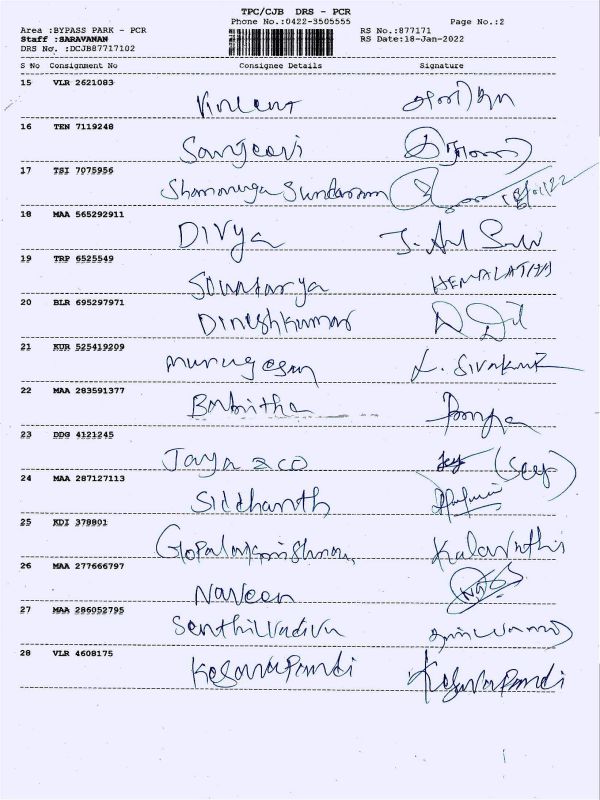 TPC/CJB DRS - PCR
Phone No.:0422-3505555 Page No.:2
Area :BYPASS PARK - PCR RS No.:877171
Staff :SARAVANAN RS Date:18-Jan-2022
DRS No. :DCJB87717102
S No Consignment No Consignee Details Signature
15 VLR 2621083
Vincent
16 TEN 7119248
Sangeevi
17 TSI 7075956
Shanmuga Sundaram
18 MAA 565292911
Divya
19 TRP 6525549
Sountarya HEMALATHA
20 BLR 695297971
Dineshkumar
21 KUR 525419209
Murugesan
22 MAA 283591377
Babitha
23 DDG 4121245
Jaya & co
24 MAA 287127113
Siddhanth
25 KDI 378801
Gopalakrishnan Kalavathi
26 MAA 277666797
Naveen
27 MAA 286052795
Senthilvadivu
28 VLR 4608175
KesavaPandi KesavaPandi